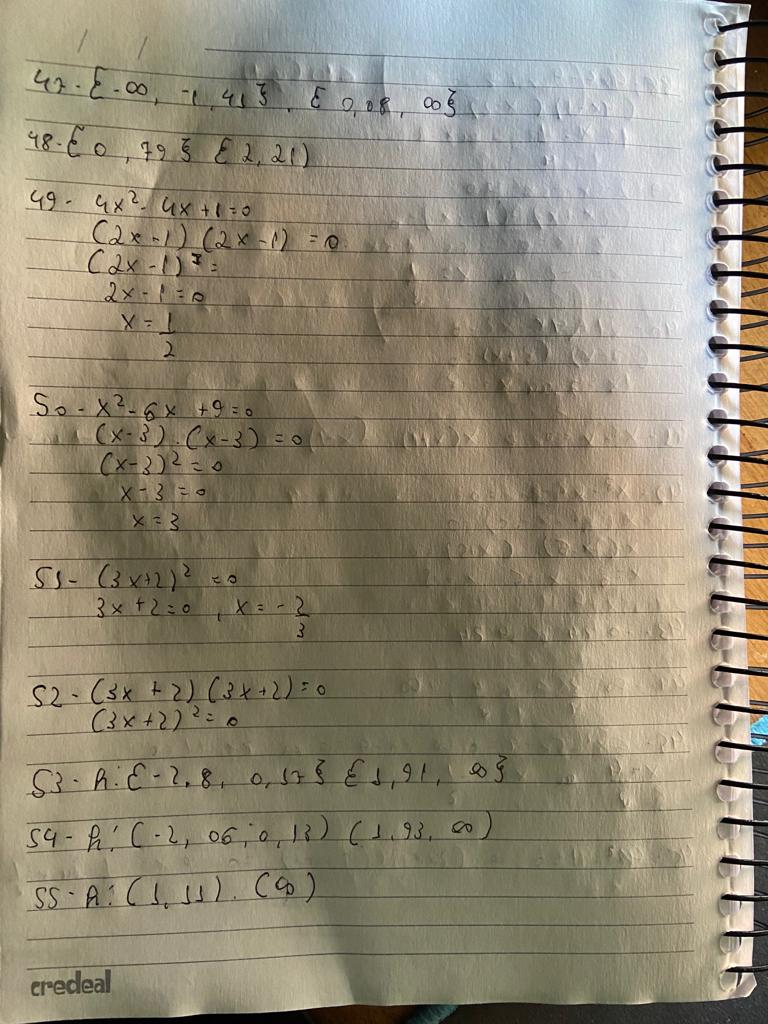 / /
47- {-∞, -1,41}. {0,08, ∞}
48- {0,79} {2,21)
49- 4x²- 4x+1=0
(2x-1) (2x-1) =0
(2x-1)²=
2x-1=0
x=1/2
50- x²-6x +9=0
(x-3).(x-3)=0
(x-3)²=0
x-3=0
x=3
51- (3x+2)² =0
3x+2=0, x= -2/3
52- (3x+2)(3x+2)=0
(3x+2)²=0
53- R: {-2,8, 0,17} {1,91, ∞}
54- R: (-2,06;0,13) (1,93, ∞)
55- R: (1,11). (∞)
credeal